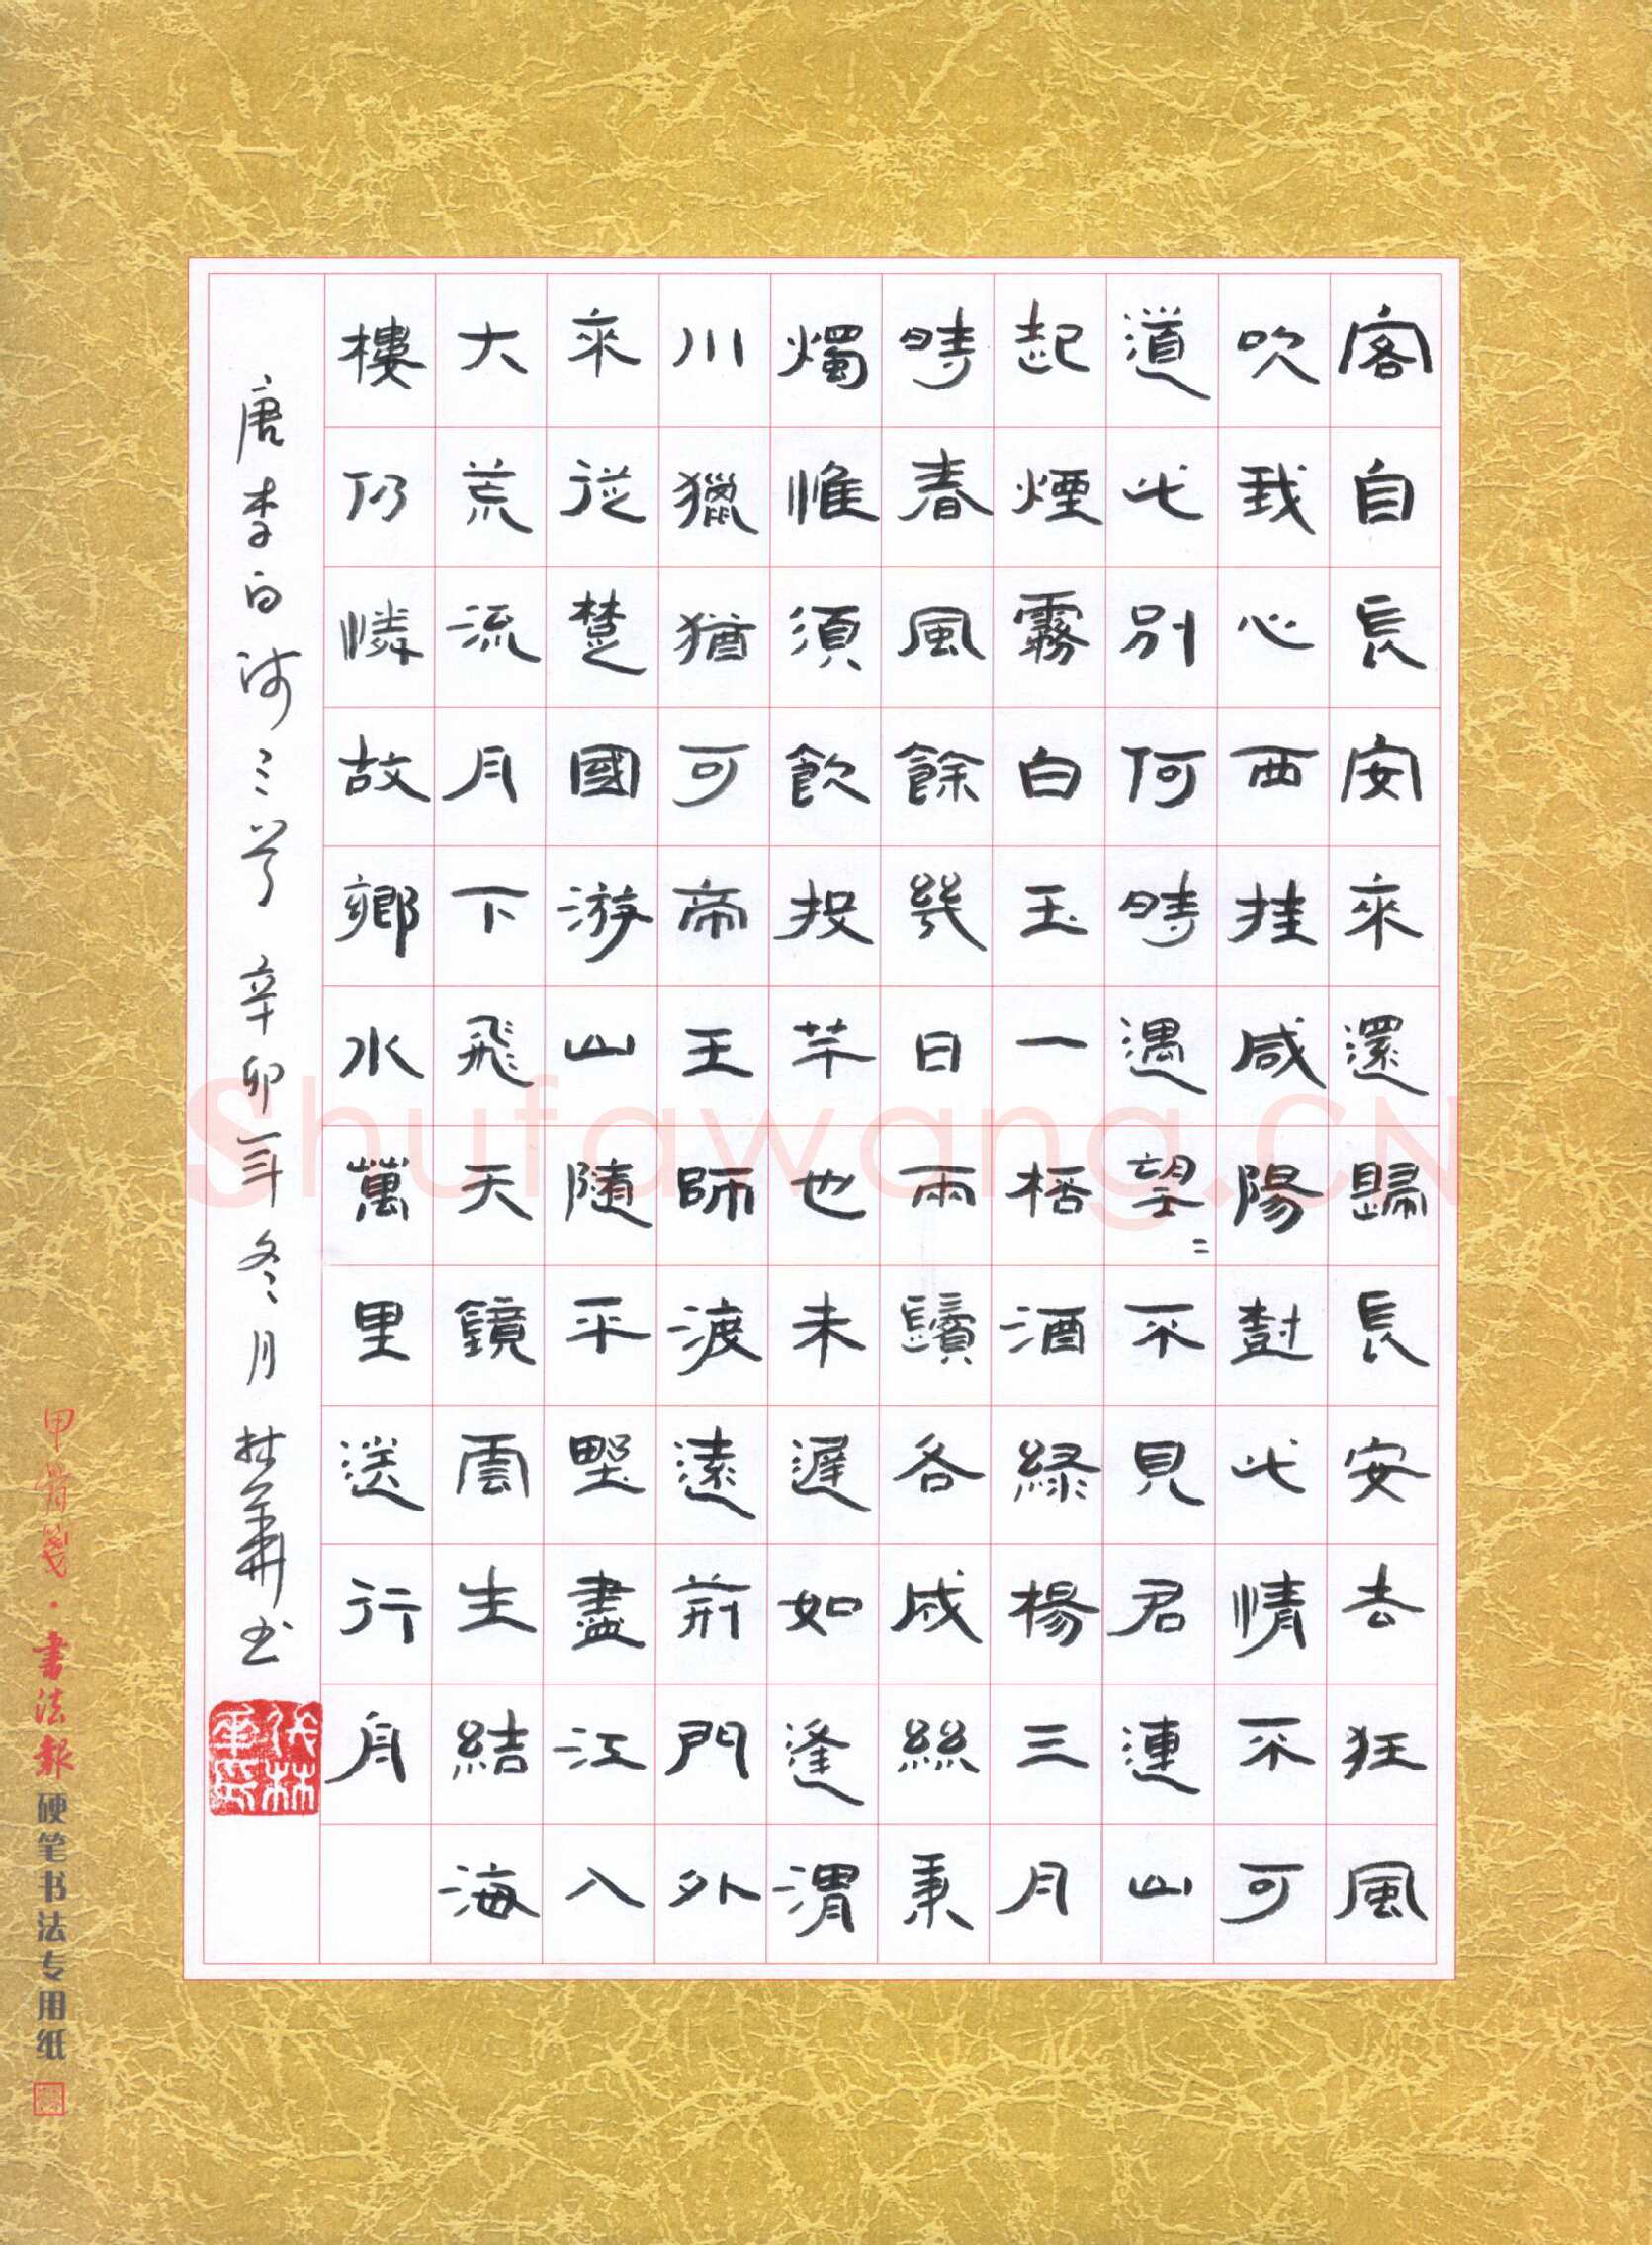 客自長安來還歸長安去狂風
吹我心西挂咸陽樹此情不可
道此別何時遇望〻不見君連山
起煙霧白玉一桮酒綠楊三月
時春風餘幾日兩鬢各成絲秉
燭惟須飲投竿也未遲如逢渭
川獵猶可帝王師渡遠荊門外
來從楚國游山隨平野盡江入
大荒流月下飛天鏡雲生結海
樓仍憐故鄉水萬里送行舟
唐李白詩三首 辛卯年冬月 林華书
甲骨笺·書法報硬笔书法专用纸
Shufawang.CN